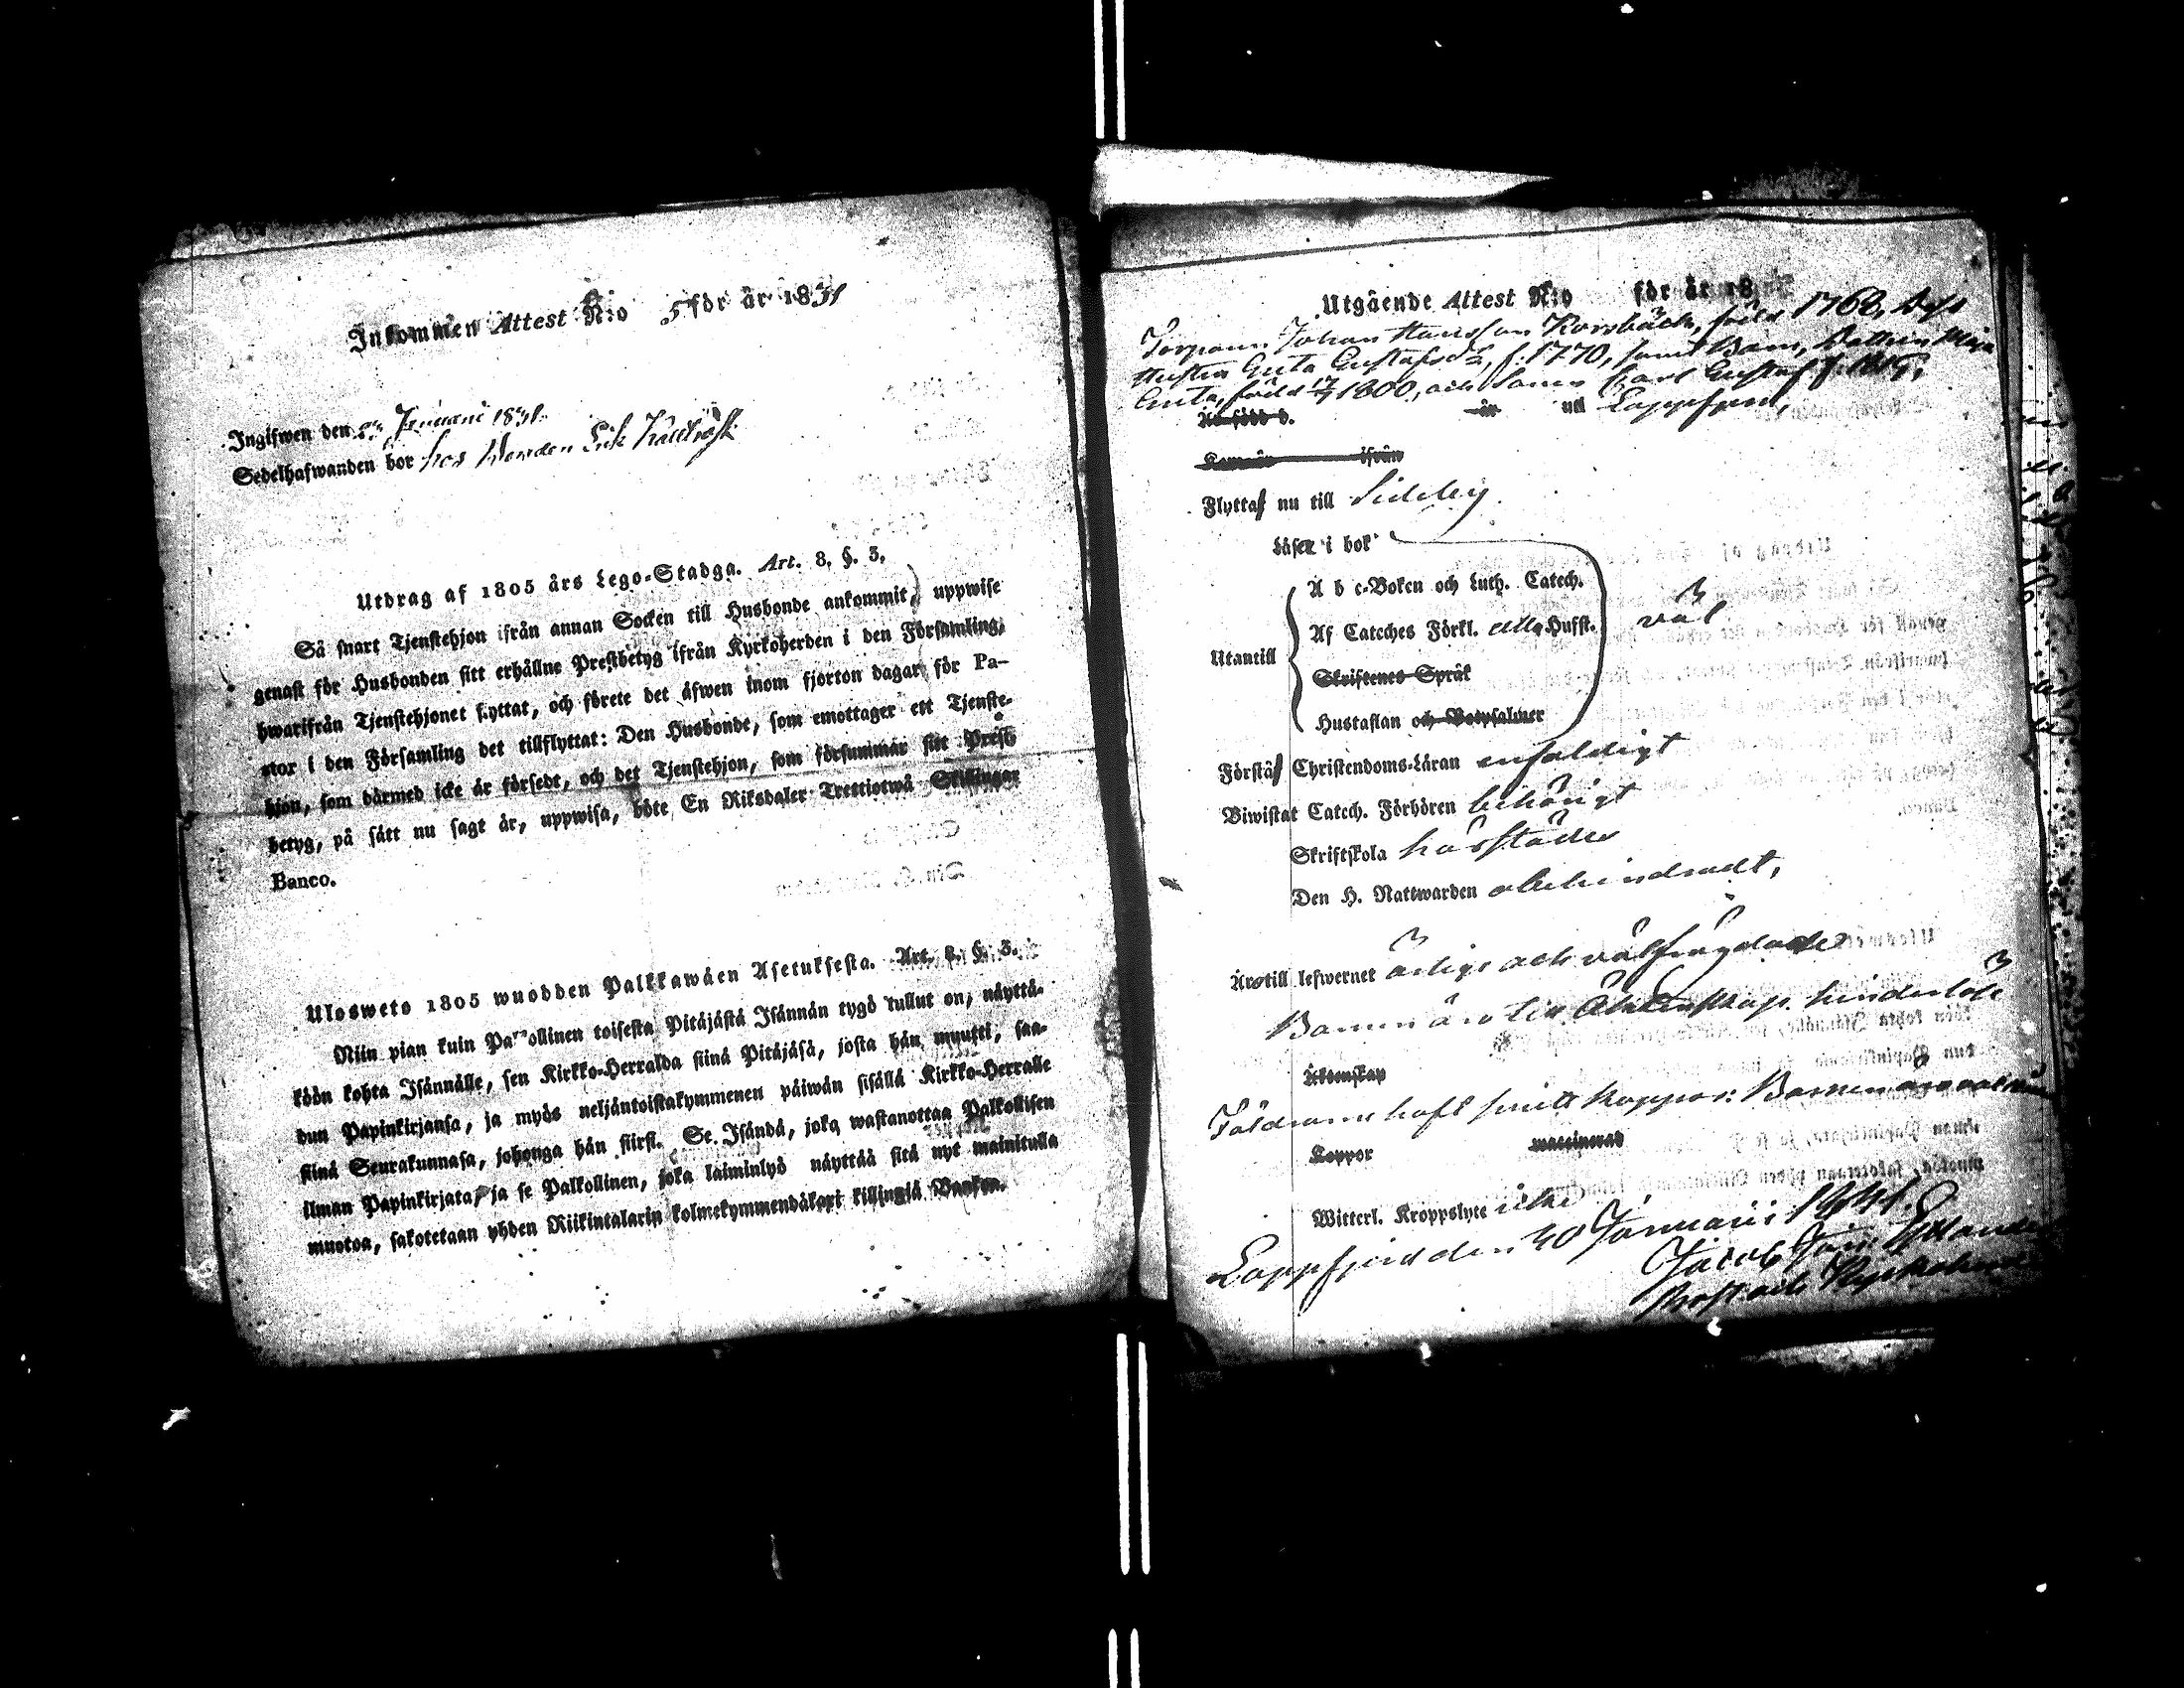 Inkommen Attest N:o 5 för år 1831
Ingifwen den Januarii 1831.
Sedelhafwanden bor hos Bonden Erik
Utdrag af 1805 års Lego-Stadga. Art. 8. §. 3.
Så snart Tjenstehjon ifrån annan Socken till Husbonde ankommit, uppwise
genast för Husbonden sitt erhållne Prestbetyg ifrån Kyrkoherden i den Församling,
hwarifrån Tjenstehjonet flyttat, och förete det äfwen inom fjorton dagar för Pa-
stor i den Församling det tillflyttat: Den Husbonde, som emottager ett Tjenste-
hjon, som därmed icke är försedt, och det Tjenstehjon, som försummar sitt Prest-
betyg, på sätt nu sagt är, uppwisa, böte En Riksdaler Trettiotwå Skillingar
Banco.
Ulosweto 1805 wuodden Palkkawäen Asetuksesta. Art. 8. §. 3.
Niin pian kuin Palkollinen toisesta Pitäjästä Isännän tygö tullut on, näyttä-
köön kohta Isännälle, sen Kirkko-Herralda siinä Pitäjäsä, josta hän muutti, saa-
dun Papinkirjansa, ja myös neljäntoistakymmenen päiwän sisällä Kirkko-Herralle
siinä Seurakunnasa, johonga hän siirsi. Se Isändä, joka wastanottaa Palkollisen
ilman Papinkirjata, ja se Palkollinen, joka laiminlyö näyttää sitä nyt mainitulla
muotoa, sakotetaan yhden Riikintalarin kolmekymmendäkaxi killingiä Bankon.
Utgående Attest N:o för år 18
Torparn Johan Hansson Korsbäck, född 1768, Dess
Hustru Greta Gustafsdr, f. 1770, samt Barn, Dottren Maja
Greta, född 17/7 1800, och Sonen Karl Gustaf f. 1815,
Är född d. in uti Lappfjerd,
Kommin ifrån
Flyttar nu till Sideby.
Läser i bok
Utantill
A b c-Boken och Luth. Catech.
Af Catechės Förkl. alla Hufst. väl
Skriftenes Språk
Hustaflan och Botpsalmer
Förstår Christendoms-Läran enfaldigt
Biwistat Catech. Förhören behörigt
Skriftskola härstädes
Den H. Nattwarden obehindradt,
Äro till lefwernet ärlige och välfrägdade
Barnen äro till Äktenskap hinderlöse
Äktenskap
Föräldrarne haft smittkoppor: Barnen äro
Koppor waccinerad
Witterl. Kroppslyte icke
Lappfjerd den 20 Januarii 1831.
Jacob
Prost och Kyrkoherde